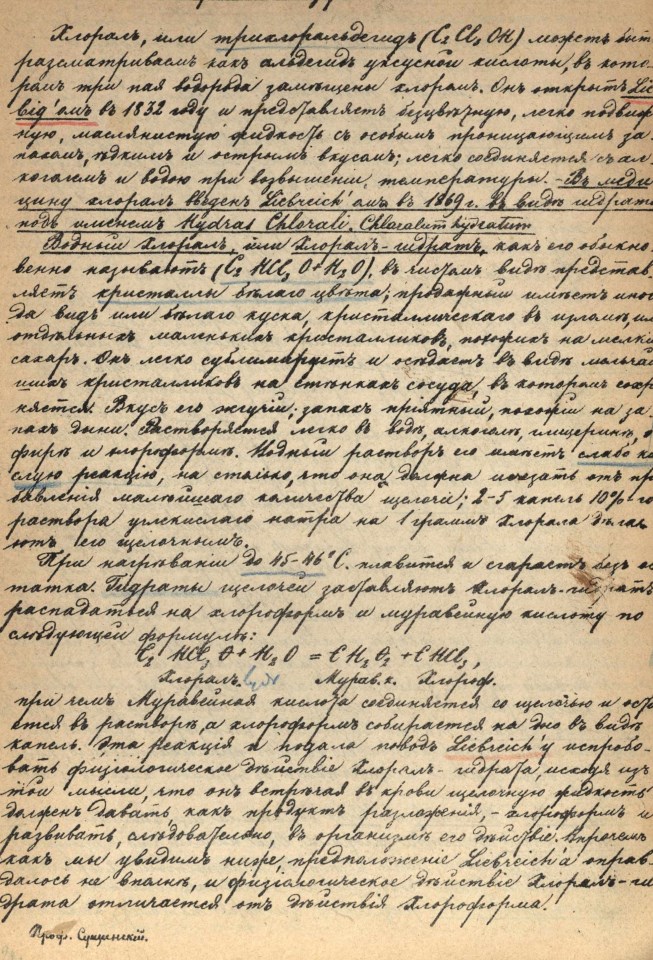 Хлоралъ, или трихлоральдегидъ (C₂ Cl₃ OH) можетъ быт
разсматриваемъ какъ альдегидъ уксусной кислоты, въ кото-
ромъ три пая водорода замѣщены хлоромъ. Онъ открытъ Lie
big'омъ въ 1832 году и представляетъ безцвѣтную, легко подвиж
ную, маслянистую жидкость съ особымъ проницающимъ за-
пахомъ, ѣдкимъ и острымъ вкусомъ; легко соединяется съ ал-
коголемъ и водою при возвышеніи температуры. - Въ меди
цину хлоралъ введенъ Liebreich'омъ въ 1869 г. въ видѣ гидрата
подъ именемъ Hydras Chlorali, Chloralum hydratum
Водный хлоралъ, или хлоралъ-гидратъ, какъ его обыкно
венно называютъ (C₂ HCl₃ O + H₂O), въ чистомъ видѣ представ
ляетъ кристаллы бѣлаго цвѣта; продажный имѣетъ иног
да видъ или бѣлаго куска, кристаллическаго въ изломѣ, ил
отдѣльныхъ маленькихъ кристалликовъ, похожихъ на мелкій
сахаръ. Онъ легко сублимируетъ и осѣдаетъ въ видѣ мельчай
шихъ кристалликовъ на стѣнкахъ сосуда, въ которомъ сохр
няется. Вкусъ его жгучій; запахъ пріятный, похожій на за-
пахъ дыни. Растворяется легко въ водѣ, алкоголѣ, глицеринѣ, э
фирѣ и хлороформѣ. Водный растворъ его имѣетъ слабо ки
слую реакцію, на столько, что она должна исчезать отъ пр
бавленія малѣйшаго количества щелочи; 2-5 капель 10% го
раствора углекислаго натра на 1 граммъ хлорала дѣла
ютъ его щелочнымъ.
При нагрѣваніи до 45-46° С. плавится и сгараетъ безъ ос
татка. Гидраты щелочей заставляютъ хлоралъ-гидратъ
распадаться на хлороформъ и муравейную кислоту по
слѣдующей формулѣ:
C₂ HCl₃ O + H₂ O = CH₂O₂ + CHCl₃,
Хлоралъ. Мурав. к. Хлороф.
при чемъ Муравейная кислота соединяется со щелочью и оста
ется въ растворѣ, а хлороформъ собирается на дно въ видѣ
капель. Эта реакція и подала поводъ Liebreich'у испробо-
вать физіологическое дѣйствіе Хлоралъ-гидрата, исходя изъ
той мысли, что онъ встрѣчая въ крови щелочную жидкость
долженъ давать, какъ продуктъ разложенія, - хлороформъ и
развивать, слѣдовательно, въ организмѣ его дѣйствіе. Впрочемъ
какъ мы увидимъ ниже, предположеніе Liebreich'а оправ
далось не вполнѣ, и физіологическое дѣйствіе Хлоралъ-ги
драта отличается отъ дѣйствія Хлороформа.
Проф. Сущинскій.